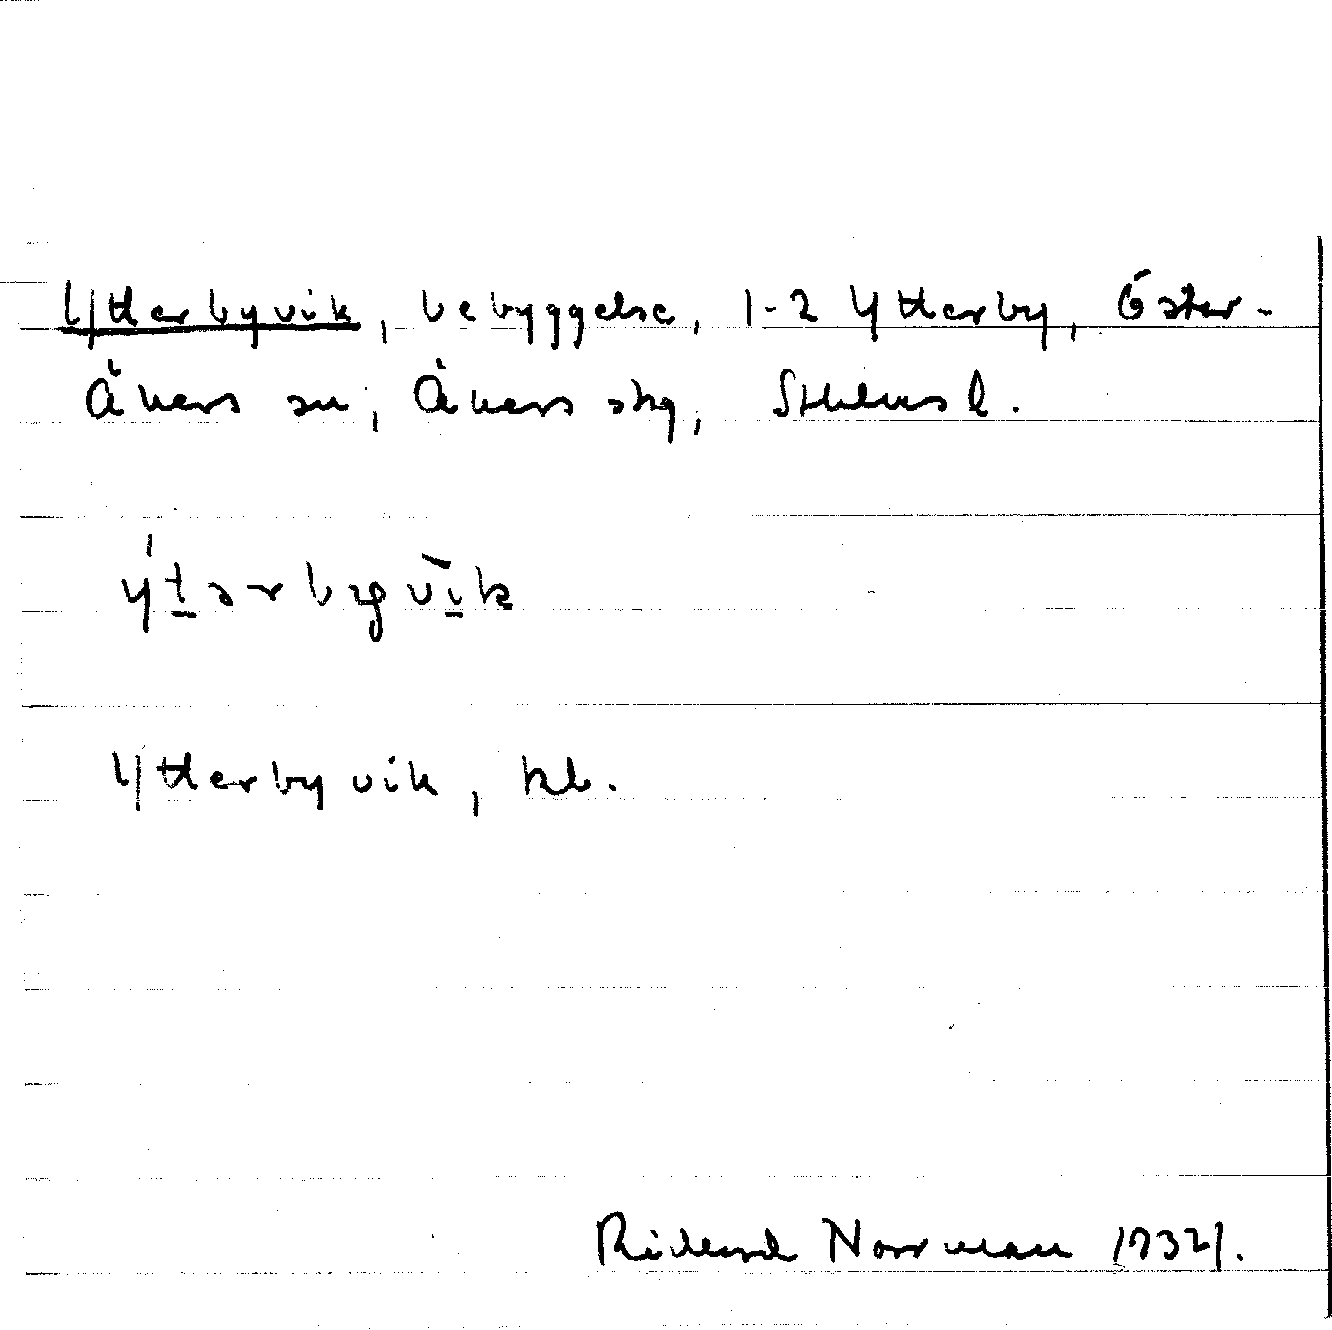 Ytterbyvik, bebyggelse, 1-2 Ytterby, Öster-
Åkers sn, Åkers skg, Sthlms l.
ýtərbyvìk
Ytterbyvik, kb.
Rickard Norrman 1932.